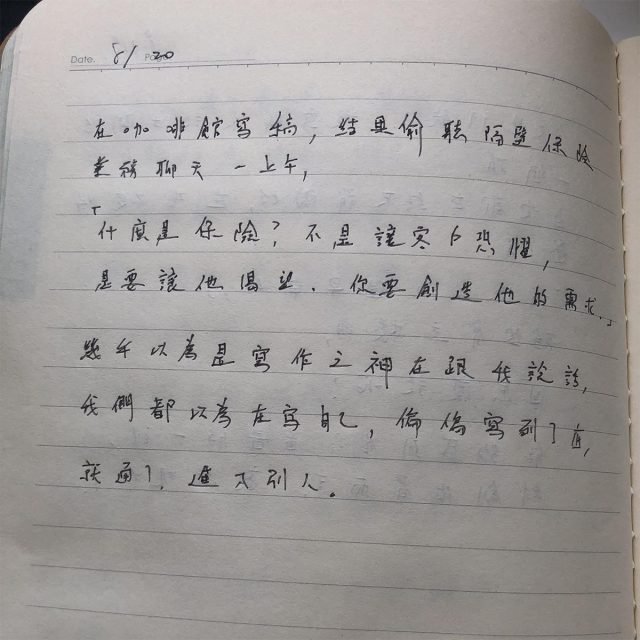 Date. 8/20 Page
在咖啡館寫稿，結果偷聽隔壁保險
業務聊天一上午，
「什麼是保險？不是讓客戶恐懼，
是要讓他渴望．你要創造他的需求..」
幾乎以為是寫作之神在跟我說話，
我們都以為在寫自己，偏偏寫到了底，
就通了，進入別人。